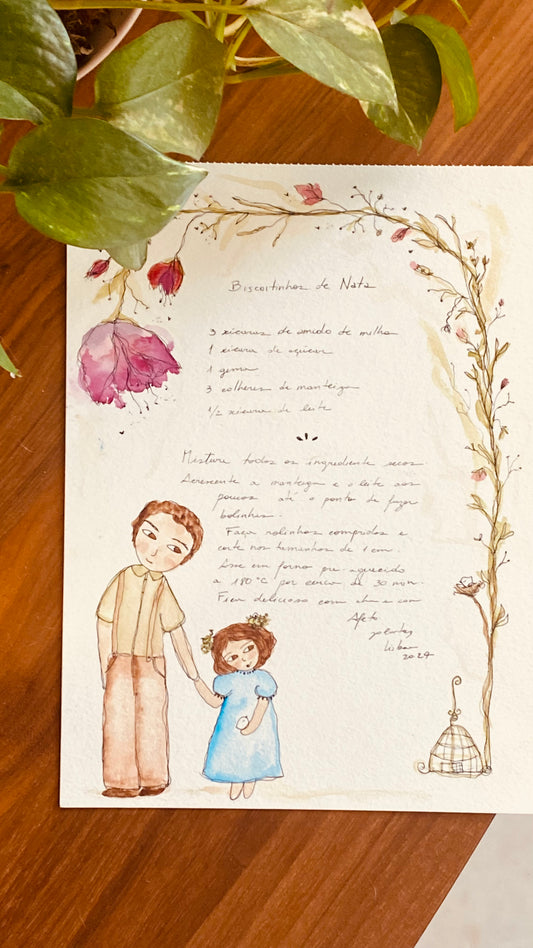 Biscoitinhos de Nata
3 xícaras de amido de milho
1 xícara de açúcar
1 gema
3 colheres de manteiga
1/2 xícara de leite
Misture todos os ingrediente secos.
Acrescente a manteiga e o leite aos
poucos até o ponto de fazer
bolinhas.
Faça rolinhos compridos e
corte nos tamanhos de 1 cm
Asse em forno pre-aquecido
a 180°C por cerca de 30 min.
Fica delicioso com
Afeto
Lisboa
2024